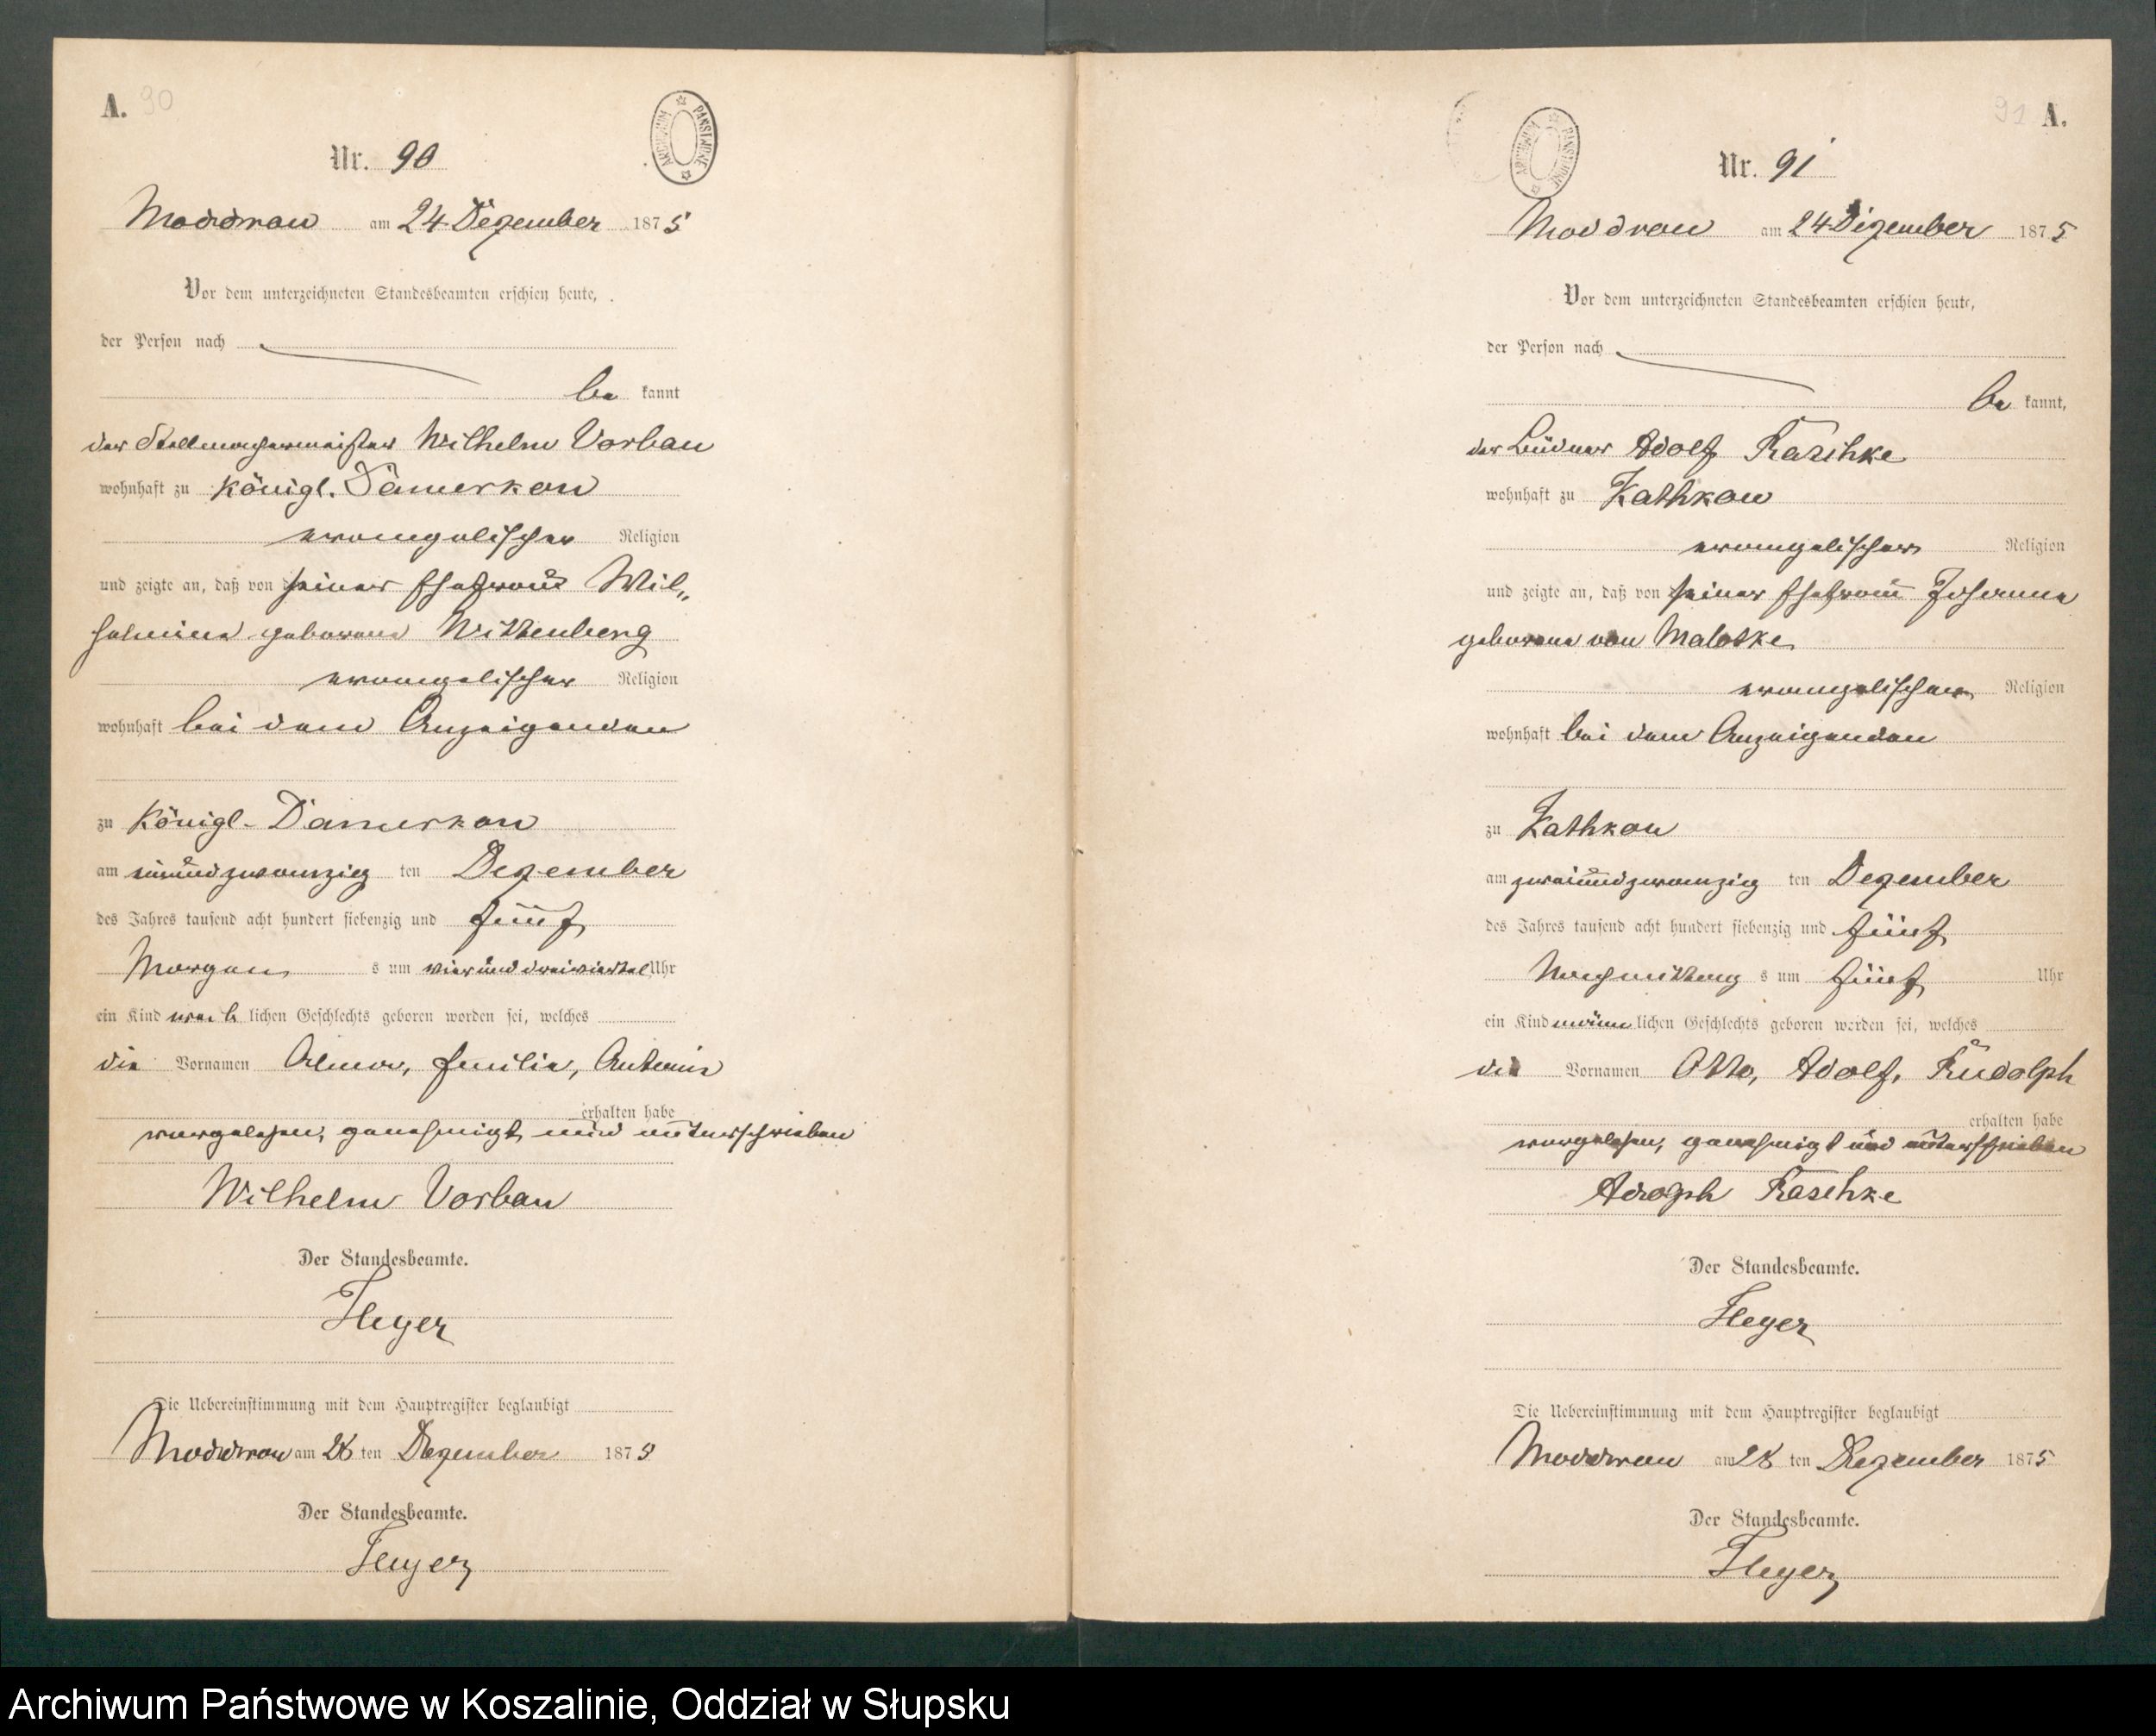 A. 90
ARCHIWUM PAŃSTWOWE
Nr. 90
Moddrow am 24 Dezember 1875
Vor dem unterzeichneten Standesbeamten erschien heute,
der Person nach
be kannt
der Stellmachermeister Wilhelm Vorbau
wohnhaft zu Königl. Damerkow
evangelischer Religion
und zeigte an, daß von seiner Ehefrau Wil„
helmine geborene Wittenberg
evangelischer Religion
wohnhaft bei dem Anzeigenden
zu Königl. Damerkow
am einundzwanzig ten Dezember
des Jahres tausend acht hundert siebenzig und fünf
Morgens um vier und dreiviertel Uhr
ein Kind weib lichen Geschlechts geboren worden sei, welches
die Vornamen Alma, Emilie, Antonie
erhalten habe
vorgelesen, genehmigt und unterschrieben
Wilhelm Vorbau
Der Standesbeamte.
Die Uebereinstimmung mit dem Hauptregister beglaubigt
Moddrow am 28 ten Dezember 1875
Der Standesbeamte.
91 A.
ARCHIWUM PAŃSTWOWE
Nr. 91
Moddrow am 24 Dezember 1875
Vor dem unterzeichneten Standesbeamten erschien heute,
der Person nach
be kannt,
der Büdner Adolf Raschke
wohnhaft zu Kathkow
evangelischer Religion
und zeigte an, daß von seiner Ehefrau Johanna
geborene von Malotke
evangelischer Religion
wohnhaft bei dem Anzeigenden
zu Kathkow
am zweiundzwanzig ten Dezember
des Jahres tausend acht hundert siebenzig und fünf
Nachmittag s um fünf Uhr
ein Kind männ lichen Geschlechts geboren worden sei, welches
die Vornamen Otto, Adolf, Rudolph
erhalten habe
vorgelesen, genehmigt und unterschrieben
Adolph Raschke
Der Standesbeamte.
Die Uebereinstimmung mit dem Hauptregister beglaubigt
Moddrow am 28 ten Dezember 1875
Der Standesbeamte.
Archiwum Państwowe w Koszalinie, Oddział w Słupsku